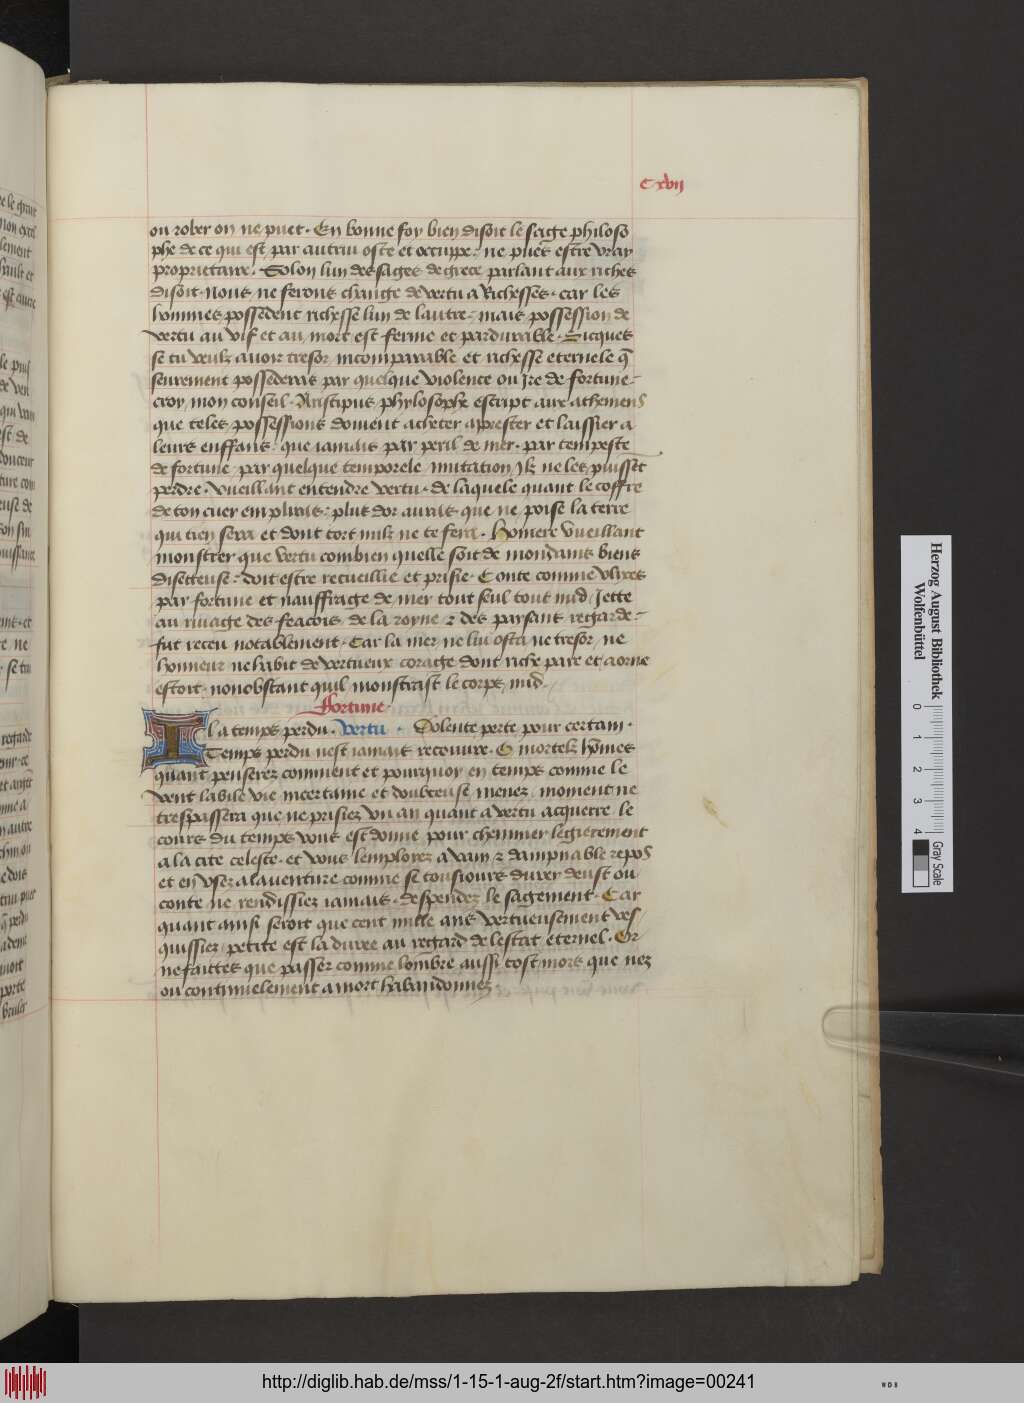 C xvii
ou rober on ne puet. En bonne foy bien disoit le saige philoso
phe de ce qui est par autrui oste et occuppe: ne pues estre vray
proprietaire. Solon lun des sages de grece parlant aux riches
disoit. Nous ne ferons change de vertu a Richesses. car les
hommes possedent richesse lun de lautre: mais possession de
vertu au vif et au mort est ferme et pardurable. Sicques
se tu veulz auoir tresor incomparable et richesse eternele q̄
seurement possederas par quelque violence ou Jre de fortune:
croy mon conseil. Aristipus phylosophe escript aux atheniens
que teles possessions doiuent acheter apprester et laissier a
leurs enffans. que iamais par peril de mer. par tempeste
de fortune par quelque temporele mutation Jlz ne les puissēt
perdre. vueillant entendre vertu. de laquele quant le coffre
de ton cuer empliras: plus dor auras que ne poise la terre
qui tien sera et dont tort nulz ne te fera. Homere vueillant
monstrer que vertu combien quelle soit de mondains biens
disetteuse: doit estre recueillie et prisie. Conte comme vlixes
par fortune et nauffrage de mer tout seul tout nud Jette
au riuage des feacois de la royne ⁊ des paysans regarde:
fut receu notablement. Car la mer ne lui osta ne tresor ne
honneur ne habit de vertueux corage dont riche pare et aorne
estoit. nonobstant quil monstrast le corps nud.
Fortune.
Il a temps perdu. Vertu. Dolente perte pour certain.
Temps perdu nest iamais recouure. O mortelz hōmes
quant penserez comment et pourquoy en temps comme le
vent labile vie incertaine et doubteuse menez moment ne
trespassera que ne prisiez vn an quant a vertu acquerre le
cours du temps vous est donne pour cheminer legierement
a la cite celeste. et vous lemployez a vain ⁊ dampnable repos
et en vsez a lauenture comme se tousiours durer deust ou
conte ne rendissiez iamais. despendez le sagement. Car
quant ainsi seroit que cent mille ans vertueusement ves
quissiez petite est la duree au regard de lestat eternel. Or
ne faittes que passer comme lombre aussi tost mors que nez
ou continuelement a mort habandonnez
Herzog August Bibliothek
Wolfenbüttel
0 1 2 3 4
Gray Scale
http://diglib.hab.de/mss/1-15-1-aug-2f/start.htm?image=00241
WDB